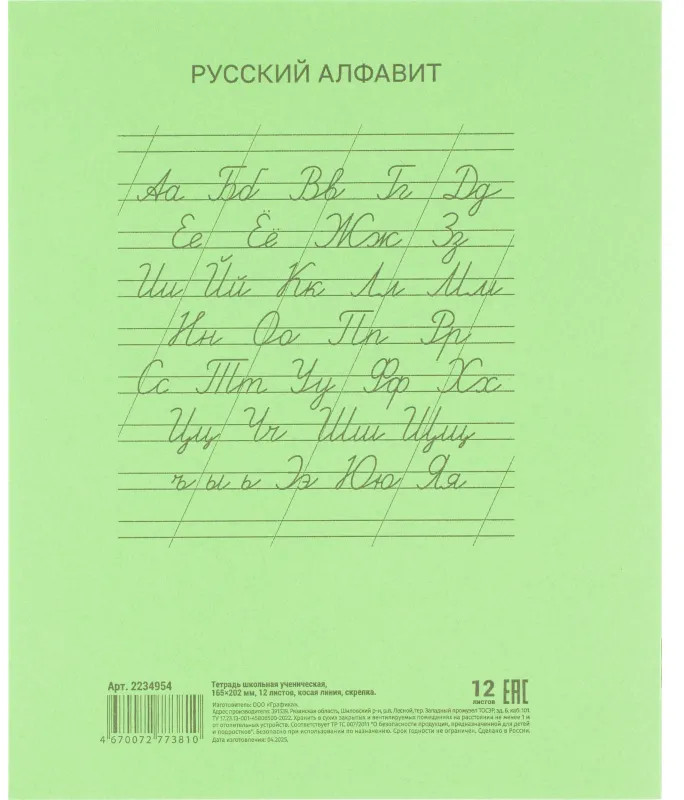 РУССКИЙ АЛФАВИТ
Аа Бб Вв Гг Дд
Ее Ёё Жж Зз
Ии Йй Кк Лл Мм
Нн Оо Пп Рр
Сс Тт Уу Фф Хх
Цц Чч Шш Щщ
ъ ы ь Ээ Юю Яя
Арт. 2234954
4 670072 773810
Тетрадь школьная ученическая,
165×202 мм, 12 листов, косая линия, скрепка.
Изготовитель: ООО
Адрес производителя: Рязанская область, Шиловский р-н, Лесной, Западный
Хранить в сухих закрытых и вентилируемых помещениях на расстоянии не менее 1 м
от отопительных устройств. Соответствует ТР ТС 007/2011 "О безопасности продукции, предназначенной для детей
и подростков". Безопасно при использовании по назначению. Срок годности не ограничен. Сделано в России.
Дата изготовления: 04.2025.
12
листов
ЕАС